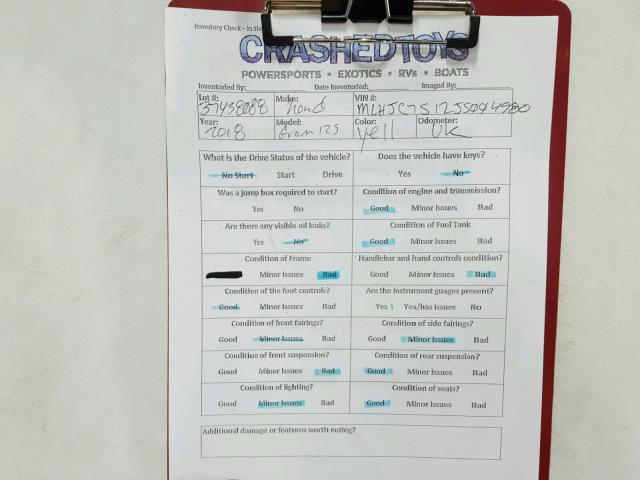 Inventory Check – In
CRASHEDTOYS
POWERSPORTS • EXOTICS • RVs • BOATS
Inventoried By: Date Inventoried: Imaged By:
Lot #: 37438088 Make: Hond VIN #: MLHJC7512J5044980
Year: 2018 Model: Grom 125 Color: Yell Odometer: UK
What is the Drive Status of the vehicle? Does the vehicle have keys?
No Start Start Drive Yes No
Was a jump box required to start? Condition of engine and transmission?
Yes No Good Minor Issues Bad
Are there any visible oil leaks? Condition of Fuel Tank
Yes No Good Minor Issues Bad
Condition of Frame Handlebar and hand controls condition?
Minor Issues Bad Good Minor Issues Bad
Condition of the foot controls? Are the instrument guages present?
Good Minor Issues Bad Yes Yes/has issues No
Condition of front fairings? Condition of side fairings?
Good Minor Issues Bad Good Minor Issues Bad
Condition of front suspension? Condition of rear suspension?
Good Minor Issues Bad Good Minor Issues Bad
Condition of lighting? Condition of seats?
Good Minor Issues Bad Good Minor Issues Bad
Additional damage or features worth noting?